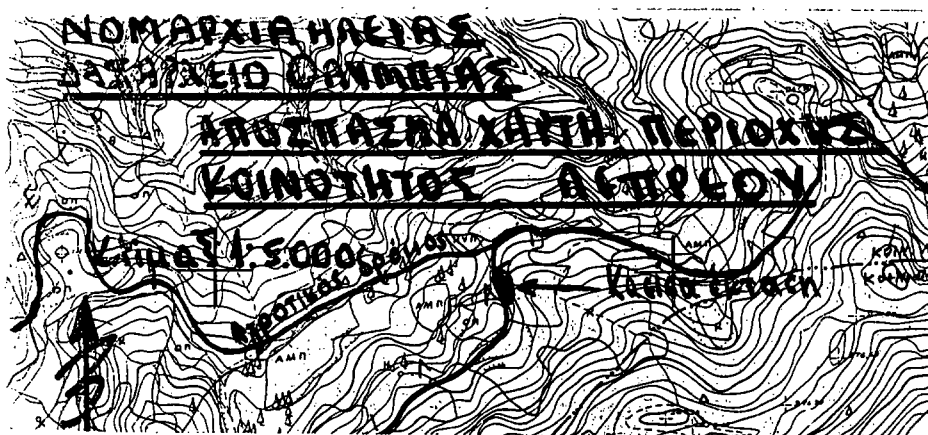 ΝΟΜΑΡΧΙΑ ΗΛΕΙΑΣ
ΔΑΣΑΡΧΕΙΟ ΟΛΥΜΠΙΑΣ
ΑΠΟΣΠΑΣΜΑ ΧΑΡΤΗ ΠΕΡΙΟΧΗΣ
ΚΟΙΝΟΤΗΤΟΣ ΛΕΠΡΕΟΥ
Κλίμαξ 1:5.000
ΑΓΡΟΤΙΚΟΣ δρόμος
ΑΜΠ
έκταση
ΑΜΠ
ΑΜΠ